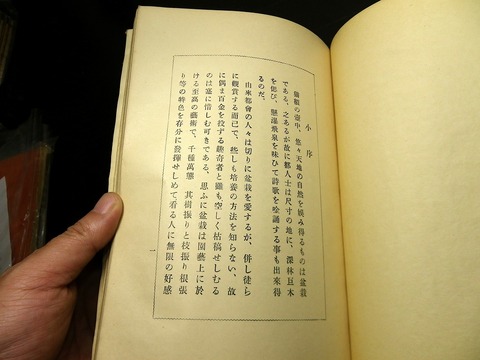 小序
猫額の壷中、悠々天地の自然を娯み得るものは盆栽
である、之あるが故に都人士は尺寸の地に、深林巨木
を偲び、懸瀑飛泉を味ひて詩歌を唫誦する事も出來得
るのだ。
由來都會の人々は切りに盆栽を愛するが、併し徒ら
に觀賞する而已で、些しも培養の方法を知らない、故
に偶ま百金を投ずる購奇者と雖も空しく枯稿せしむる
のは寔に惜しむ可きである、思ふに盆栽は園藝上に於
ける至高の藝術で、千種萬態　其樹振りと枝振り根張
り等の特色を存分に發揮せしめて看る人に無限の好感
一